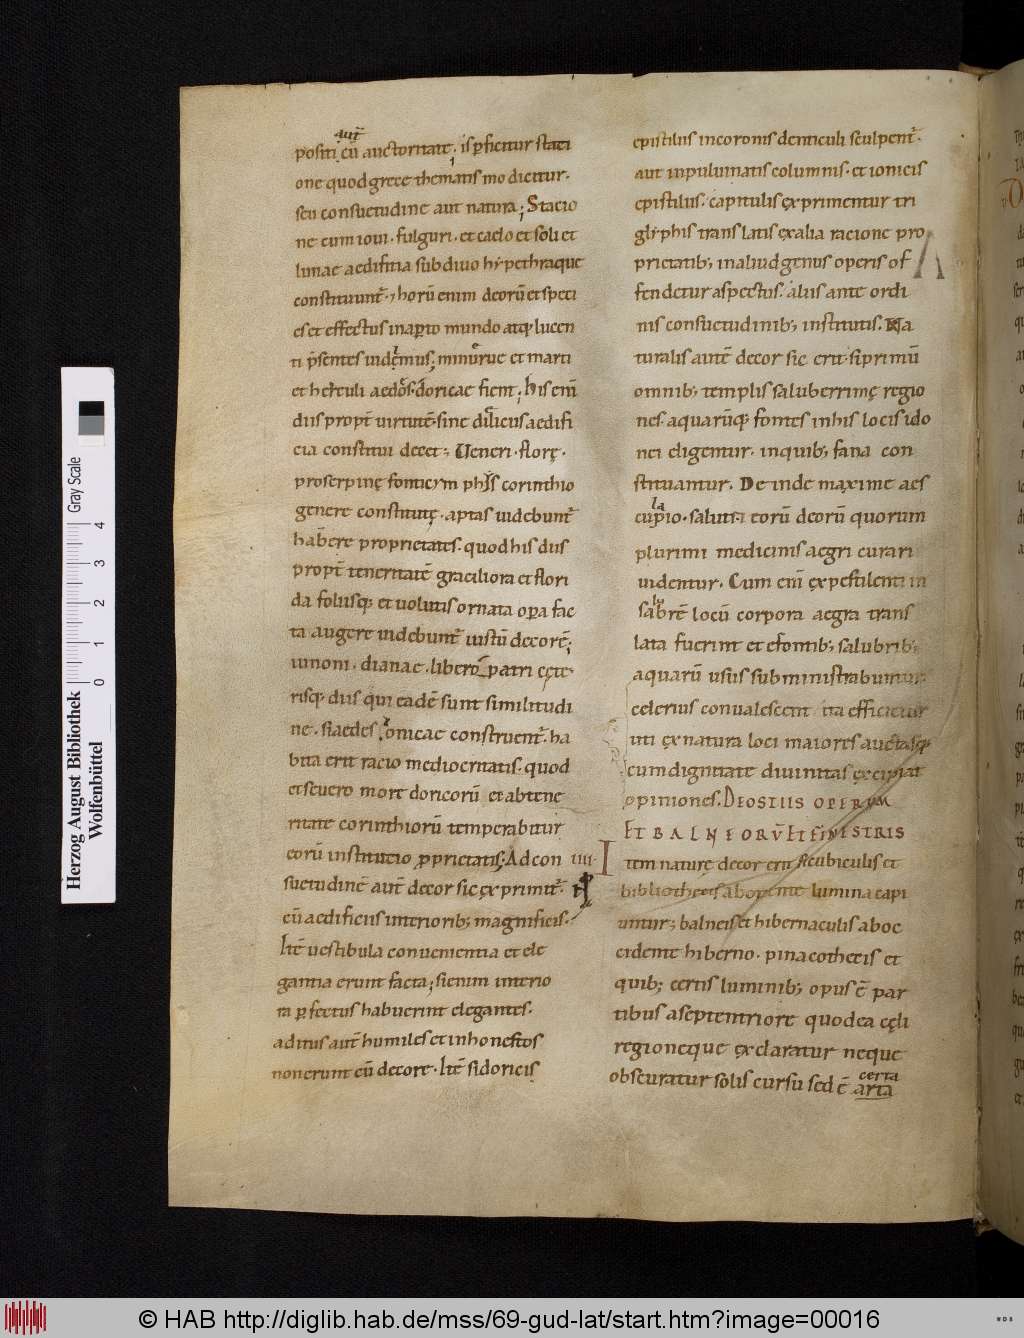 aut̄
positi cū auctoritate. is p̄ficitur stati
one quod grece thematis mo dicitur.
seu consuetudine aut natura; Statio
ne cum ioui. fulguri. et caelo et soli et
lunae aedificia sub diuo hypethraque
constituunt̄. horū enim deorū et speci
es et effectus in apto mundo atq; lucen
ti p̄sentes uidemus; minerue et marti
et herculi aedes doricae fient; his eni
diis propt̄ uirtutē. sine deliciis aedifi
cia constitui decet; Veneri. florę.
proserpinę fontium
corinthio
genere constitutę. aptas uidebunt̄
habere proprietates. quod his diis
propt̄ teneritatē graciliora et flori
da foliisq; et uolutis ornata opa fac
ta augere uidebunt̄ iustū decorē;
iunoni. dianae. libero patri cęte
risq; diis qui eadē sunt similitudi
ne. si aedes ionicae construent̄. ha
bita erit racio mediocritatis. quod
et seuero more doricorū et ab tene
ritate corinthiorū temperabitur
eorū institutio p̄prietatis; Ad con
suetudinē aut̄ decor sic ęxprimit̄.
cū aedificiis interiorib; magnificis.
Itē uestibula conuenientia et ele
gantia erunt facta; si enim interio
ra pfectus habuerint elegantes.
aditus aut̄ humiles et inhonestos
non erunt cū decore. Itē si doricis
epistiliis in coronis denticuli sculpent̄.
aut in puluinatis columnis. et ionicis
epistiliis. capitulis ęxprimentur tri
glyphis translatis ęx alia racione pro
prietatib; in aliud genus operis of
fendetur aspectus. aliis ante ordi
nis consuetudinib; institutis. Na
turalis autē decor sic erit. si primū
omnib; templis saluberrimę regio
nes. aquarūq; fontes in his locis ido
nei eligentur. in quib; fana con
stituantur. Deinde maxime aes
la
cupio. saluti. eorū deorū quorum
plurimi medicinis aegri curari
uidentur. Cum eni ęx pestilenti in
lu
sabrē locū corpora aegra trans
lata fuerint et e fontib; salubrib;
aquarū usus subministrabuntur
celerius conualescent ita efficietur
uti ęx natura loci maiores auctasq;
cum dignitate diuinitas ęxcipiat
opiniones. DE OSTIIS OPERUM
ET BALNEORŪ ET FENESTRIS
IIII.
Item naturę decor erit si cubiculis et
bibliothecis ab oriente lumina capi
untur; balneis et hibernaculis ab oc
cidente hiberno. pinacothecis et
quib; certis luminib; opus ē par
tibus a septentrione quod ea cęli
regio neque ęxclaratur neque
obscuratur solis cursu sed ē certa
arta
Herzog August Bibliothek
Wolfenbüttel
0 1 2 3 4
Gray Scale
© HAB http://diglib.hab.de/mss/69-gud-lat/start.htm?image=00016